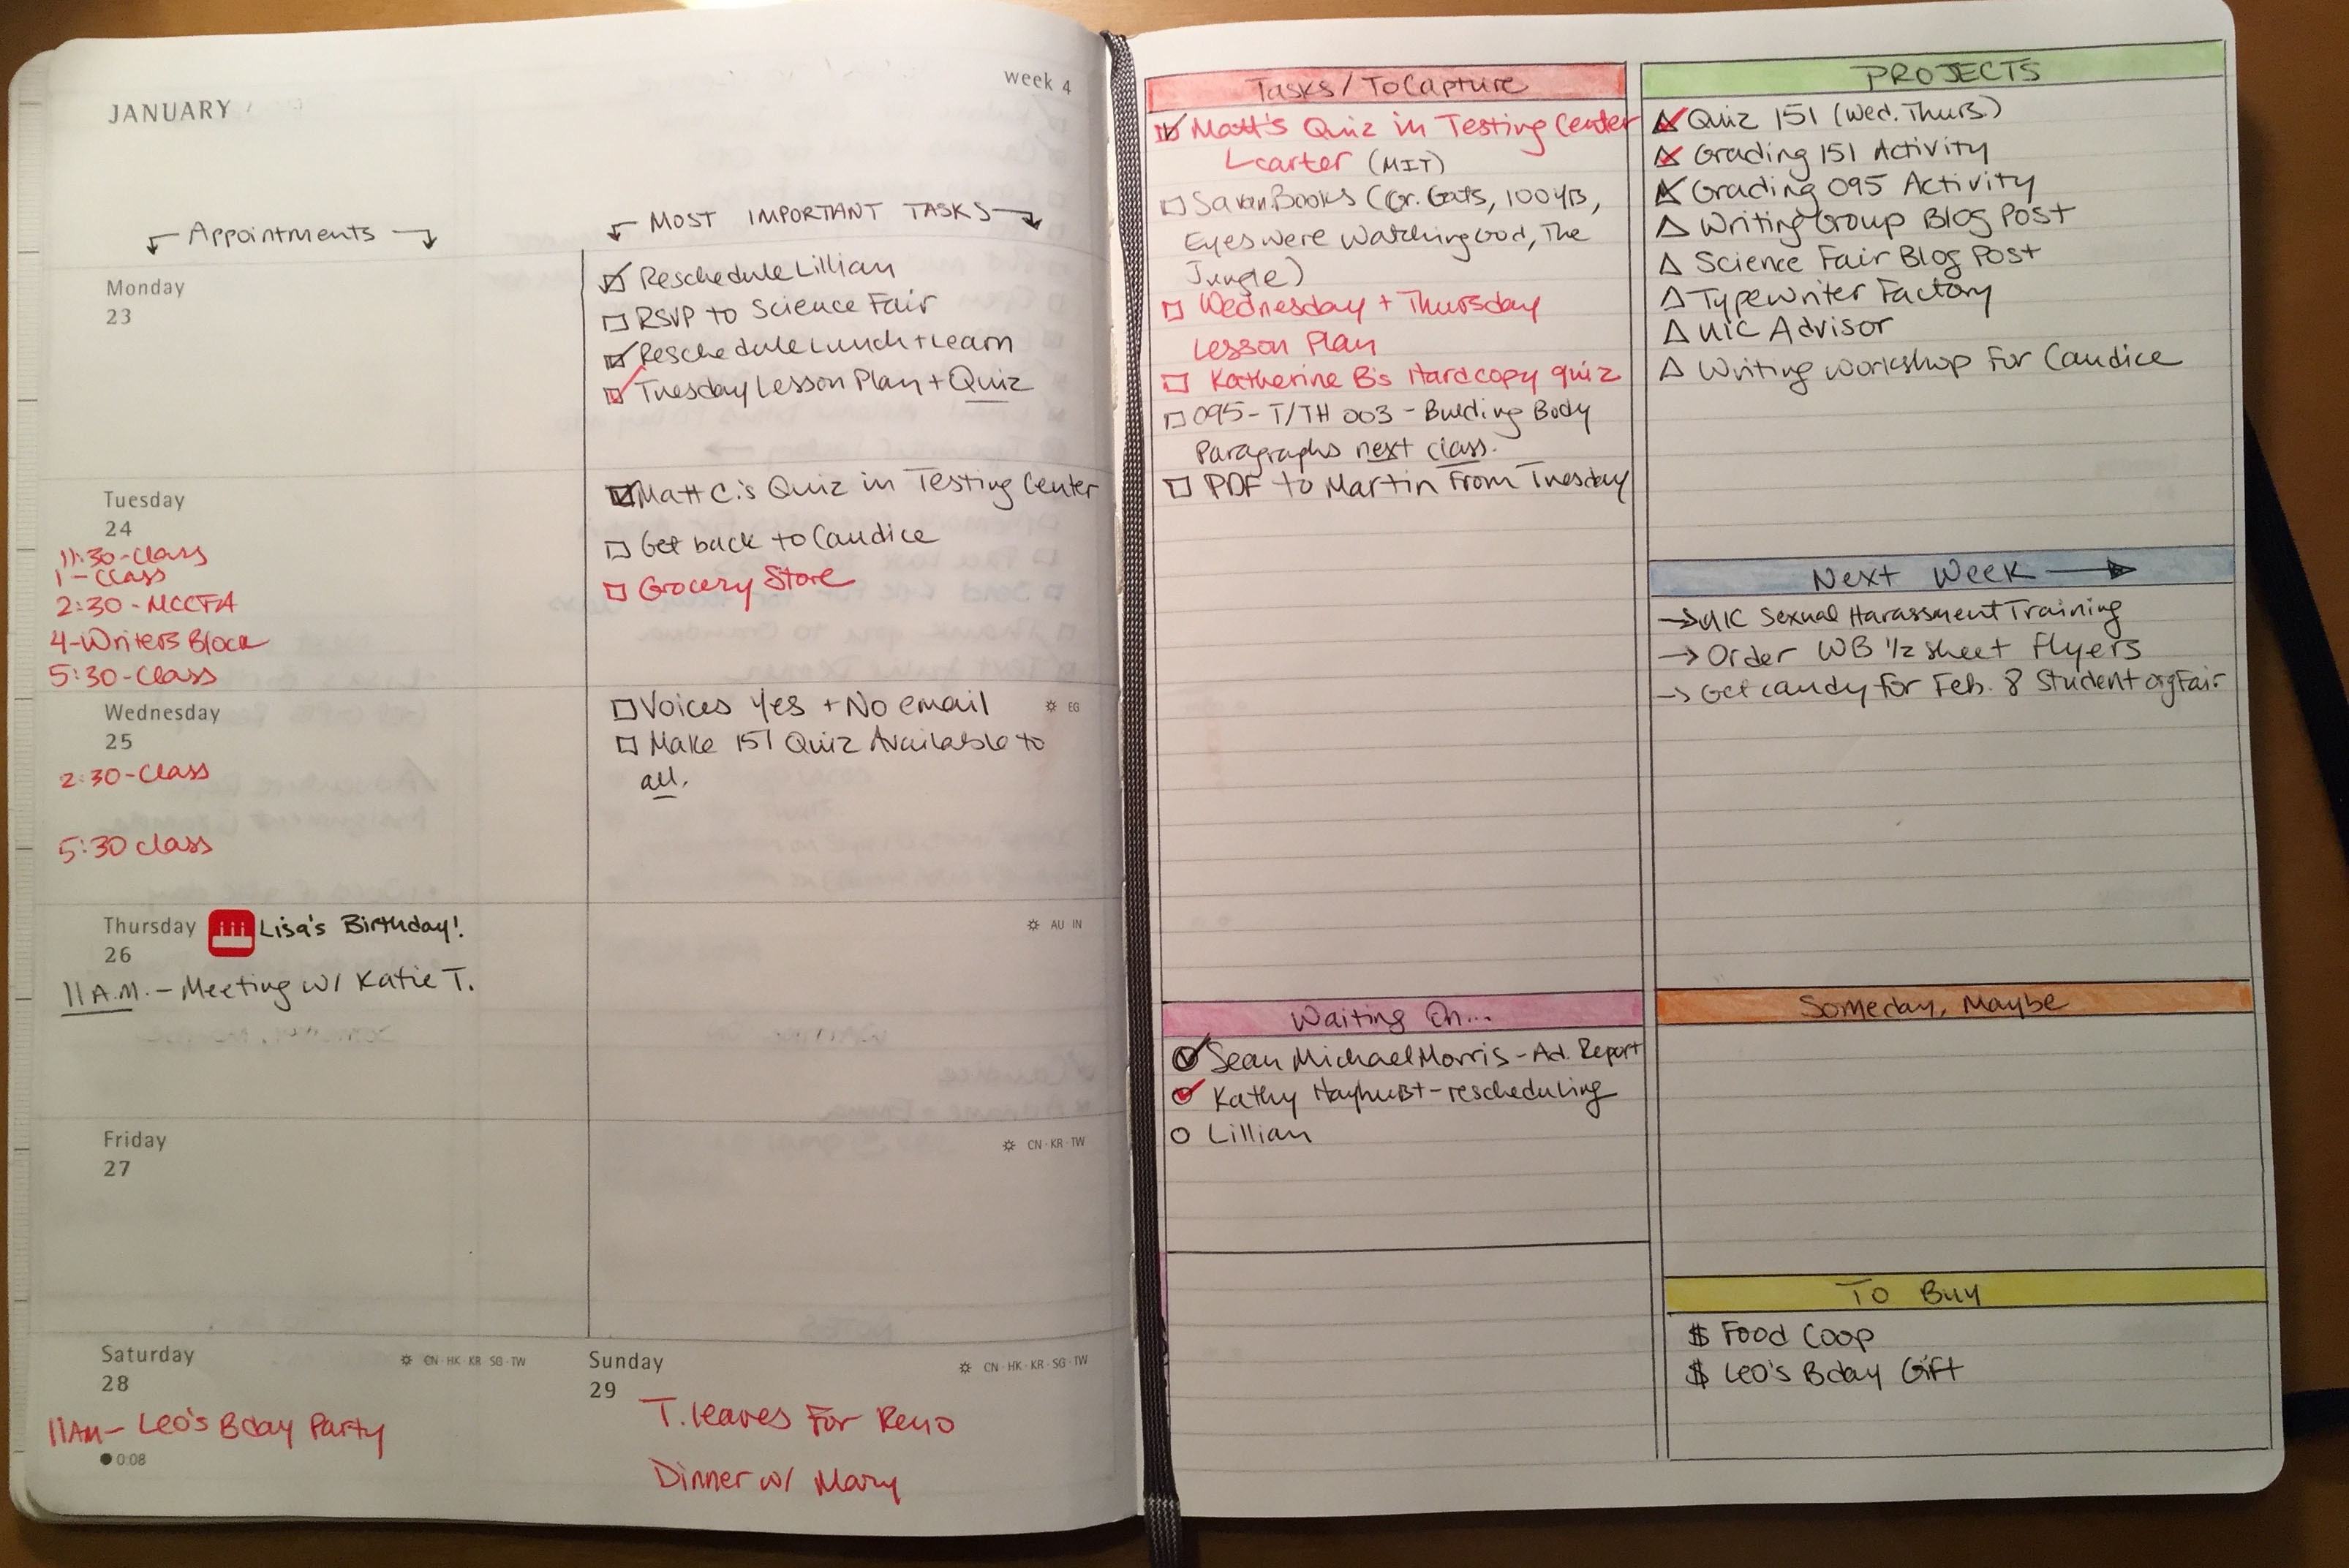 JANUARY
week 4
Appointments
MOST IMPORTANT TASKS
Monday
23
Reschedule Lillian
RSVP to Science Fair
Reschedule Lunch + Learn
Tuesday Lesson Plan + Quiz
Tuesday
24
11:30-Class
1-Class
2:30-MCCTA
4-Writers Block
5:30-Class
Matt C.'s Quiz in Testing Center
Get back to Candice
Grocery Store
Wednesday
25
2:30-Class
5:30 class
EG
Voices Yes + No email
Make 151 Quiz Available to
all.
Thursday
26
Lisa's Birthday!
11 A.M. - Meeting w/ Katie T.
AU IN
Friday
27
CN · KR · TW
Saturday
28
CN · HK · KR · SG · TW
11AM- Leo's Bday Party
0:08
Sunday
29
CN · HK · KR · SG · TW
T. leaves For Reno
Dinner w/ Mary
Tasks/ToCapture
Matt's Quiz in Testing Center
carter (MIT)
Books (Gr. Gats, 100 Yrs,
Eyes were Watching God, The
Jungle)
Wednesday + Thursday
Lesson Plan
Katherine B's Hardcopy quiz
095- T/TH 003 - Building Body
Paragraphs next class.
PDF to Martin From Tuesday
Waiting On...
Sean Michael Morris - Ad. Report
Kathy Hayhurst-rescheduling
Lillian
PROJECTS
Quiz 151 (Wed. Thurs)
Grading 151 Activity
Grading 095 Activity
Writing Group Blog Post
Science Fair Blog Post
Typewriter Factory
UIC Advisor
Writing workshop For Candice
Next Week →
→ UIC Sexual Harassment Training
→ Order WB 1/2 sheet flyers
→ Get candy for Feb. 8 Student org Fair
Someday, Maybe
To Buy
$ Food Coop
$ Leo's Bday Gift